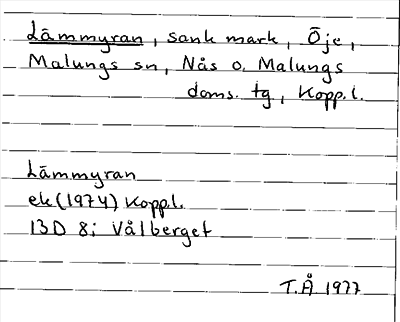 Lämmyran, sank mark, Öje,
Malungs sn, Nås o. Malungs
doms. tg, Kopp.l.
Lämmyran
ek (1974) Kopp.l.
13D 8i Vålberget
T.Å 1977